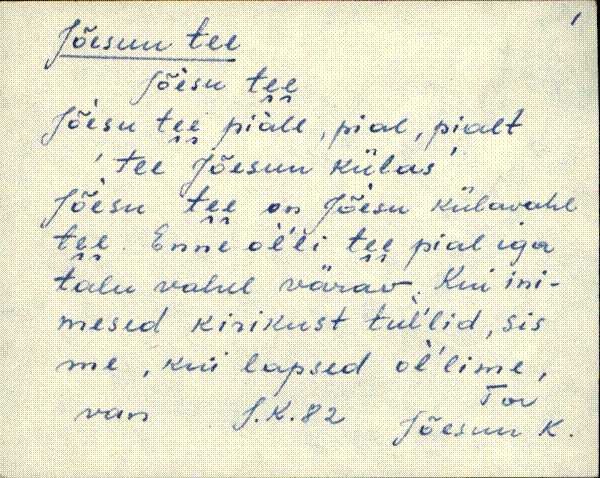 1
Jõesuu tee
Jõèsu tee
Jõèsu tee piàle, pial, pialt
'tee Jõesuu külas'
Jõèsu tee on Jõèsu külavahl
tee. Enne òl'li tee pial iga
talu vahel värav. Kui ini-
mesed kirikust tul'lid, sis
me, kui lapsed òl'lime,
van J.K. 82
Tor
Jõesuu k.